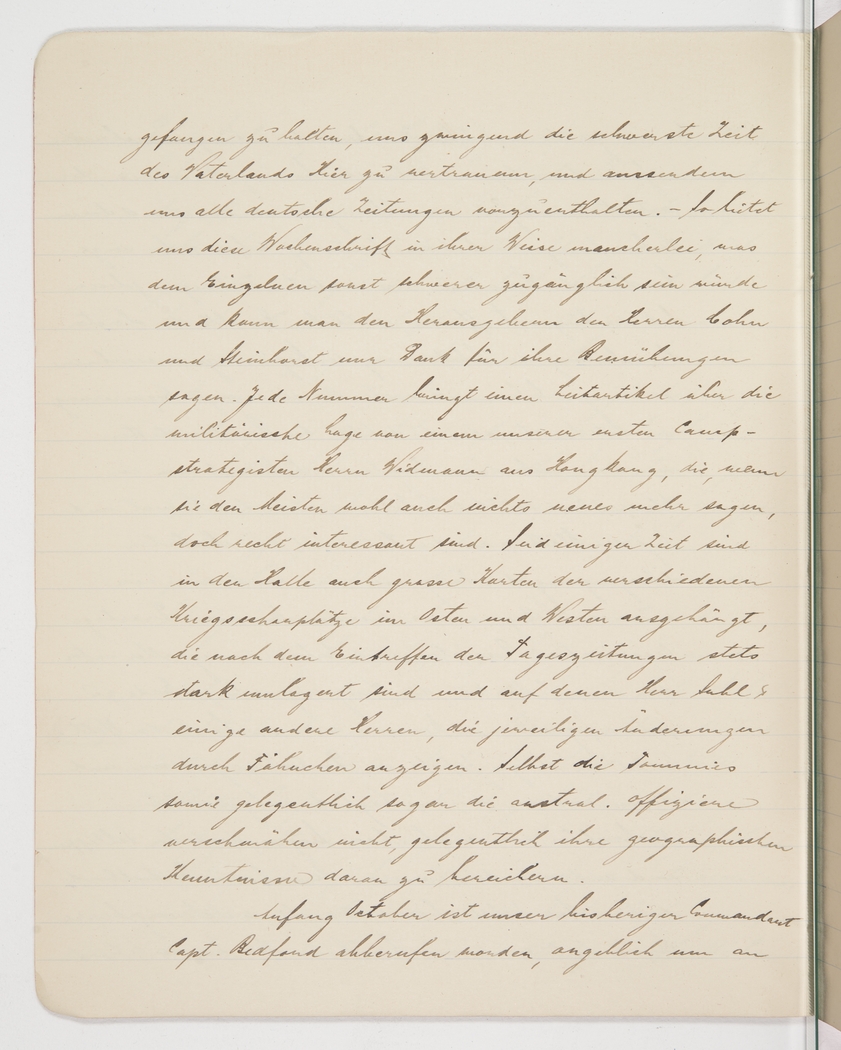 gefangen zu halten, uns zwingend die schwerste Zeit
des Vaterlands hier zu verträumen, und ausserdem
uns alle deutsche Zeitungen vorzuenthalten. – So bietet
uns diese Wochenschrift in ihrer Weise mancherlei, was
dem Einzelnen sonst schwerer zugänglich sein würde
und kann man den Herausgebern den Herren Cohn
und Steinhorst nur Dank für ihre Bemühungen
sagen. Jede Nummer bringt einen Leitartikel über die
militärische Lage von einem unserer ersten Camp-
strategisten Herrn Widmann aus Hongkong, die, wenn
sie den Meisten wohl auch nichts neues mehr sagen,
doch recht interessant sind. Seid einiger Zeit sind
in der Halle auch grosse Karten der verschiedenen
Kriegsschauplätze im Osten und Westen ausgehängt,
die nach dem Eintreffen der Tageszeitungen stets
stark umlagert sind und auf denen Herr Suhl &
einige andere Herren, die jeweiligen Änderungen
durch Fähnchen anzeigen. Selbst die Tommies
sowie gelegentlich sogar die austral. Offiziere
verschmähen nicht, gelegentlich ihre geographischen
Kenntnisse daran zu bereichern.
Anfang October ist unser bisheriger Commandant
Capt. Bedford abberufen worden, angeblich um an